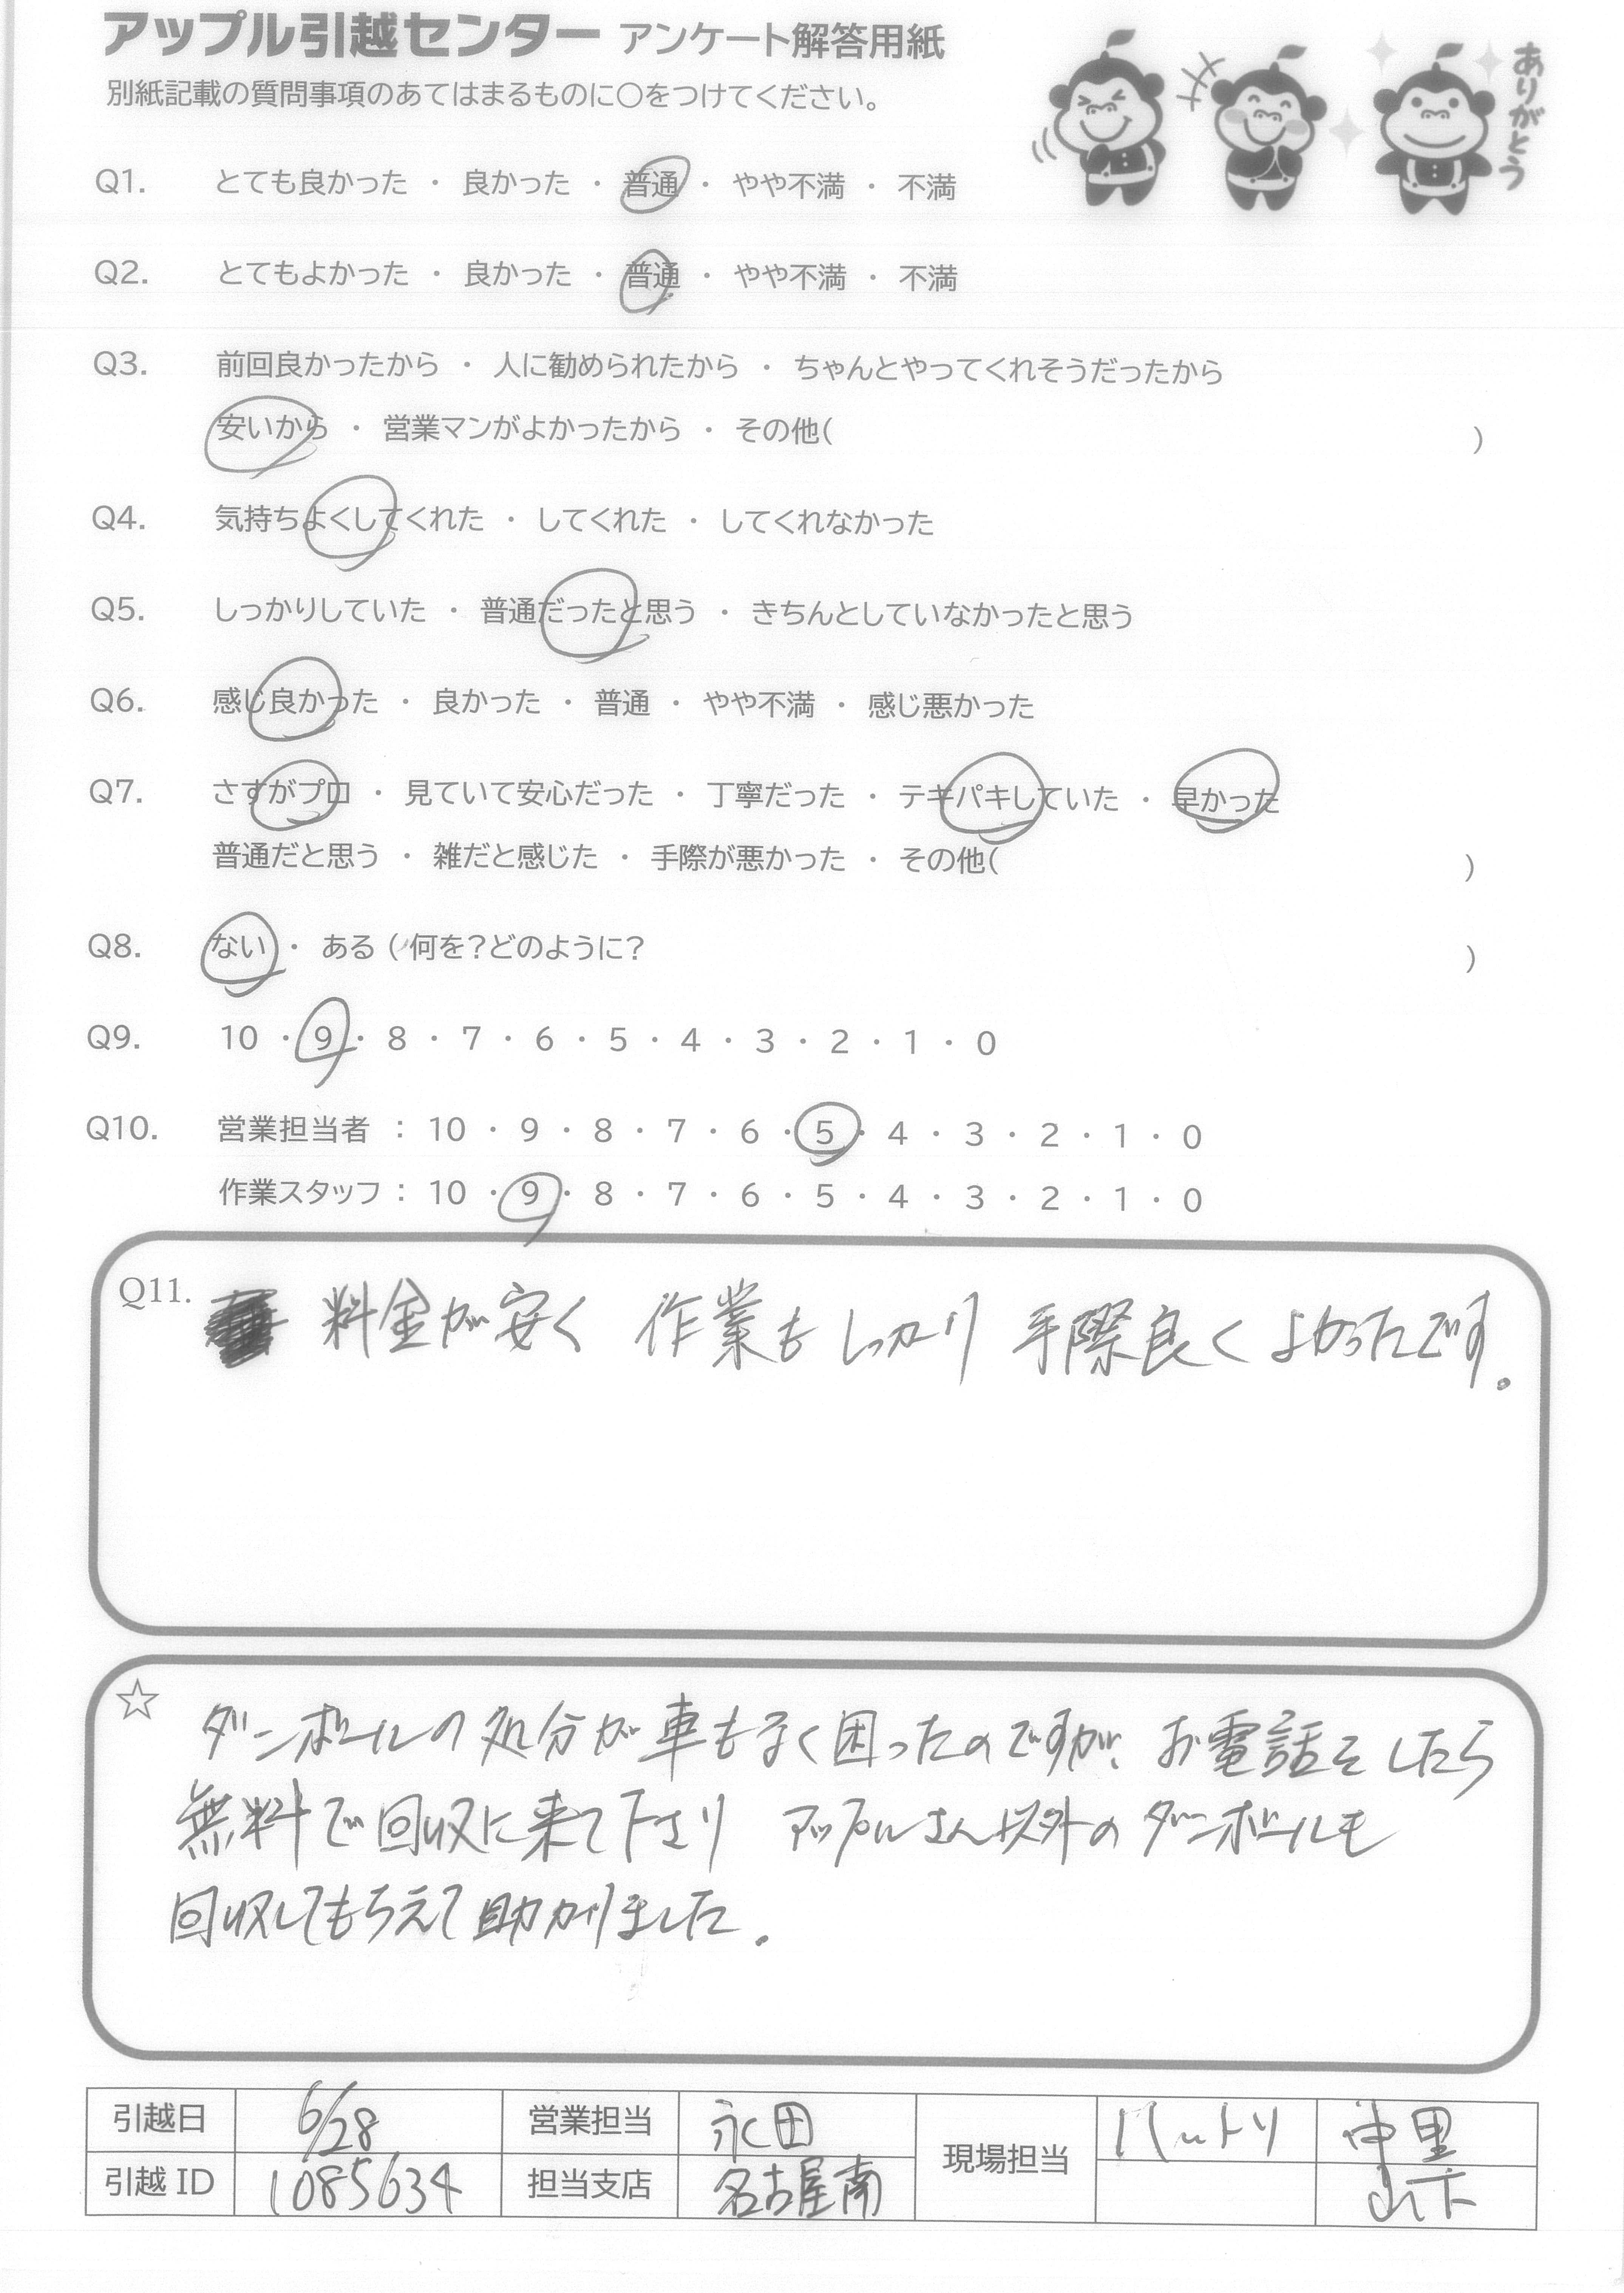 アップル引越センター アンケート解答用紙
別紙記載の質問事項のあてはまるものに○をつけてください。
ありがとう
Q1. とても良かった ・ 良かった ・ 普通 ・ やや不満 ・ 不満
Q2. とてもよかった ・ 良かった ・ 普通 ・ やや不満 ・ 不満
Q3. 前回良かったから ・ 人に勧められたから ・ ちゃんとやってくれそうだったから
安いから ・ 営業マンがよかったから ・ その他( )
Q4. 気持ちよくしてくれた ・ してくれた ・ してくれなかった
Q5. しっかりしていた ・ 普通だったと思う ・ きちんとしていなかったと思う
Q6. 感じ良かった ・ 良かった ・ 普通 ・ やや不満 ・ 感じ悪かった
Q7. さすがプロ ・ 見ていて安心だった ・ 丁寧だった ・ テキパキしていた ・ 早かった
普通だと思う ・ 雑だと感じた ・ 手際が悪かった ・ その他( )
Q8. ない ・ ある ( 何を?どのように? )
Q9. 10 ・ 9 ・ 8 ・ 7 ・ 6 ・ 5 ・ 4 ・ 3 ・ 2 ・ 1 ・ 0
Q10. 営業担当者 : 10 ・ 9 ・ 8 ・ 7 ・ 6 ・ 5 ・ 4 ・ 3 ・ 2 ・ 1 ・ 0
作業スタッフ : 10 ・ 9 ・ 8 ・ 7 ・ 6 ・ 5 ・ 4 ・ 3 ・ 2 ・ 1 ・ 0
Q11. 料金が安く 作業もしっかり 手際良く よかったです。
☆ ダンボールの処分が車もなく困ったのですが、お電話をしたら
無料で回収に来て下さり アップルさん以外のダンボールも
回収してもらえて助かりました.
引越日 6/28 営業担当 永田 現場担当 ハットリ 中里
引越 ID 1085634 担当支店 名古屋南 山下